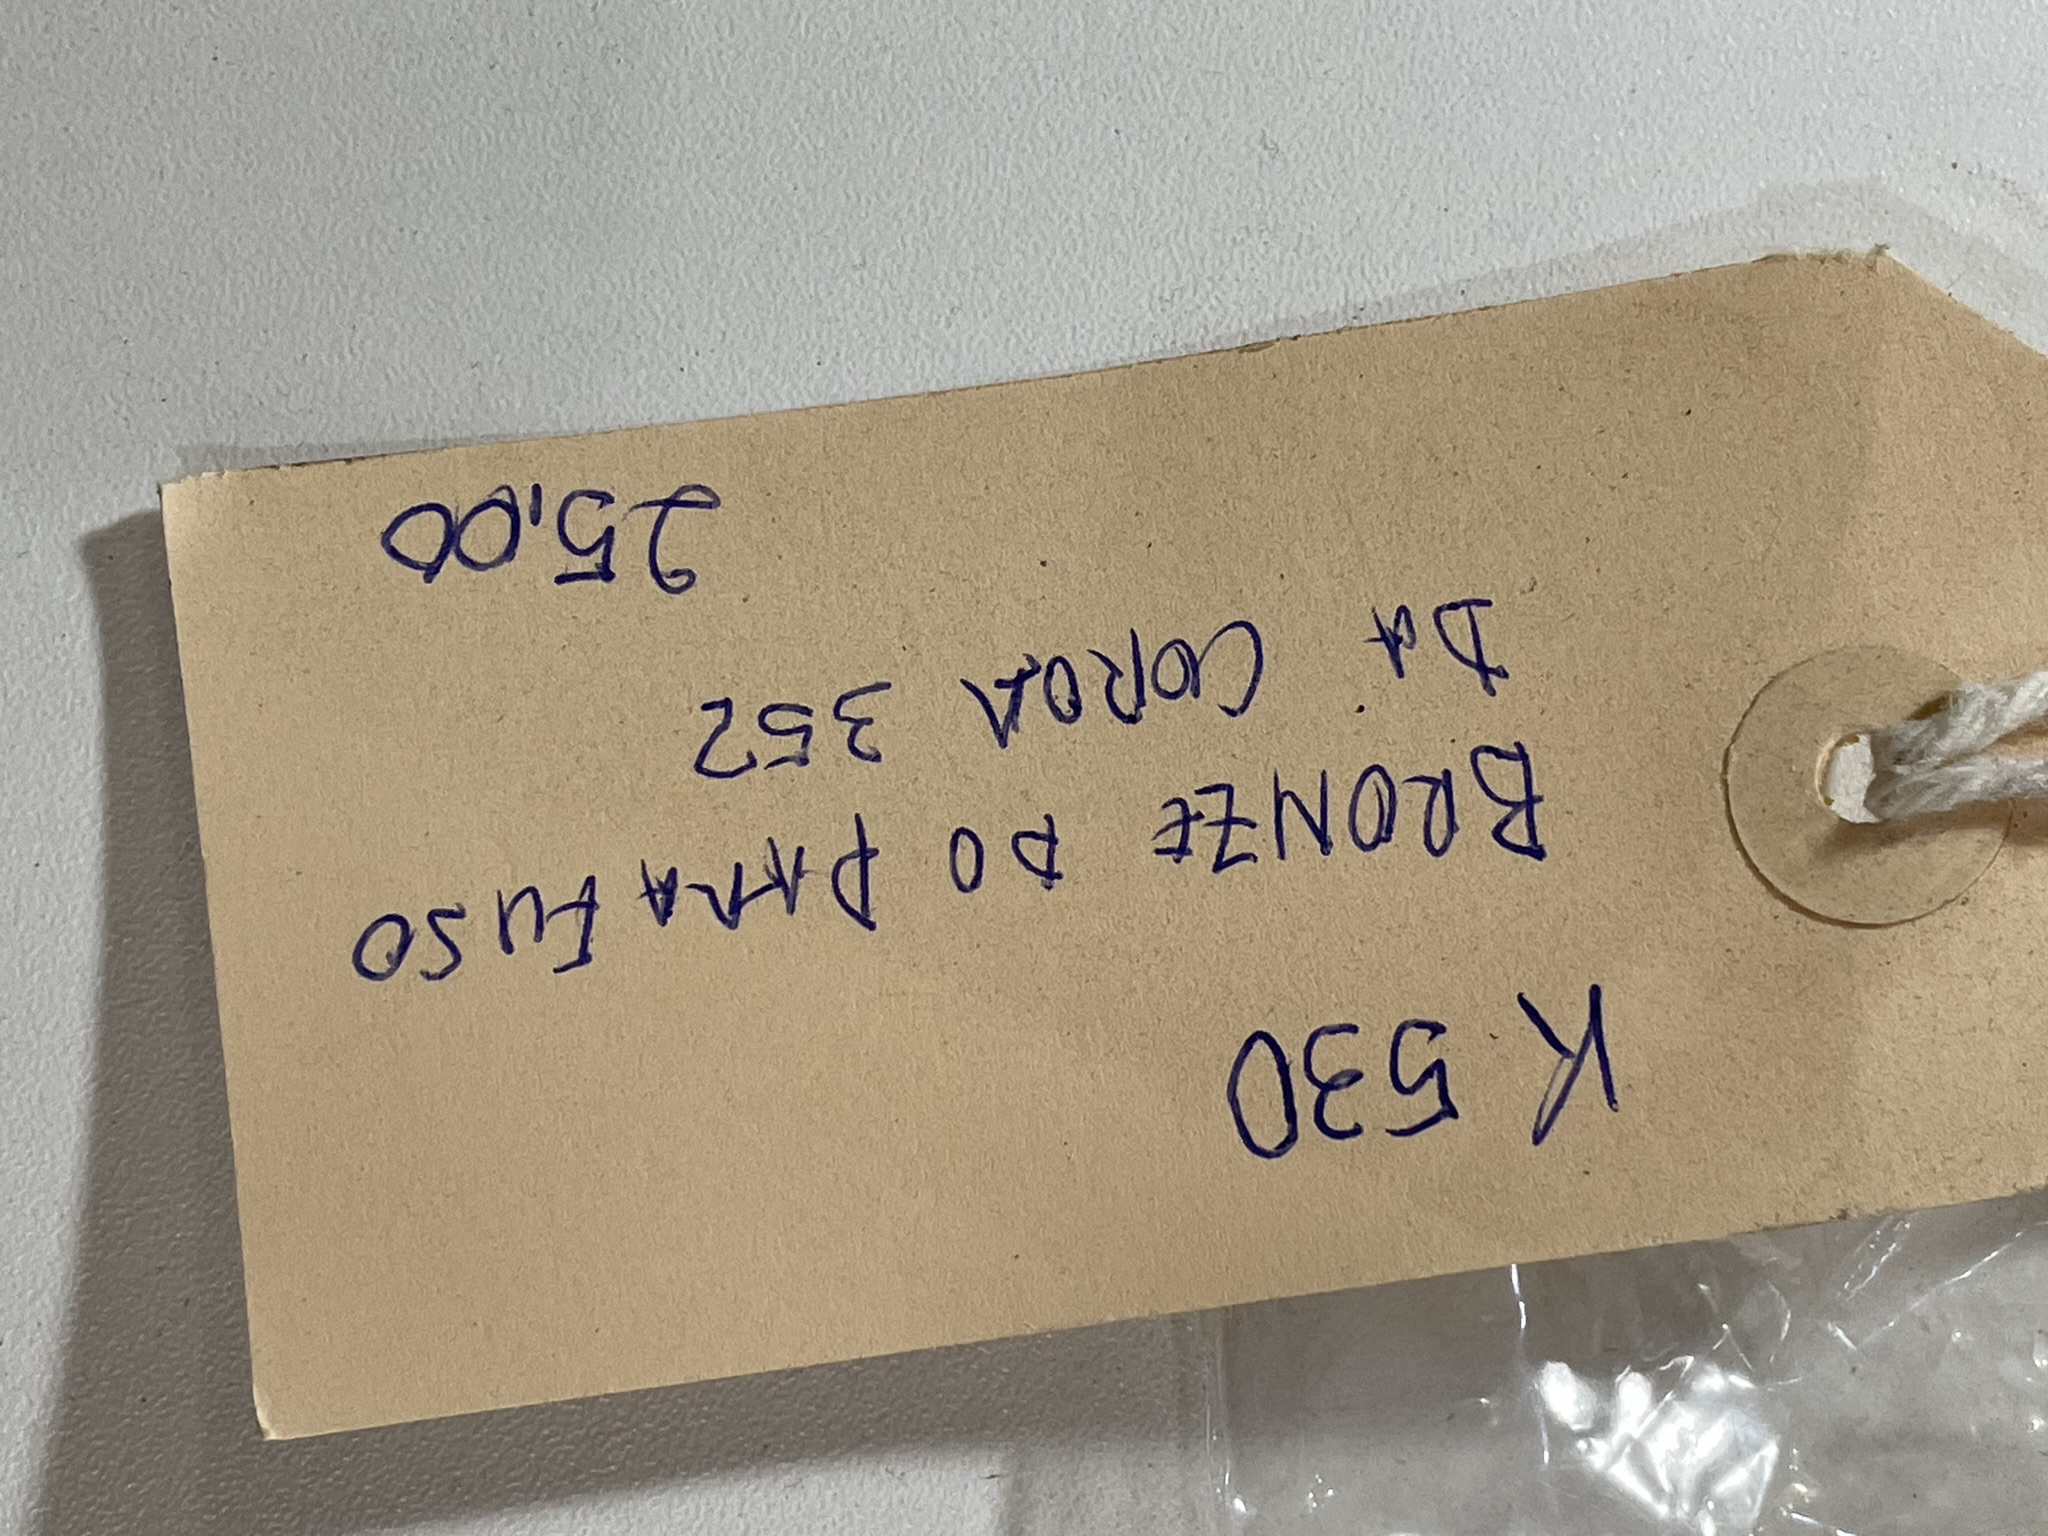 K 530
BRONZE DO PARAFUSO
DA COROA 352
25,00